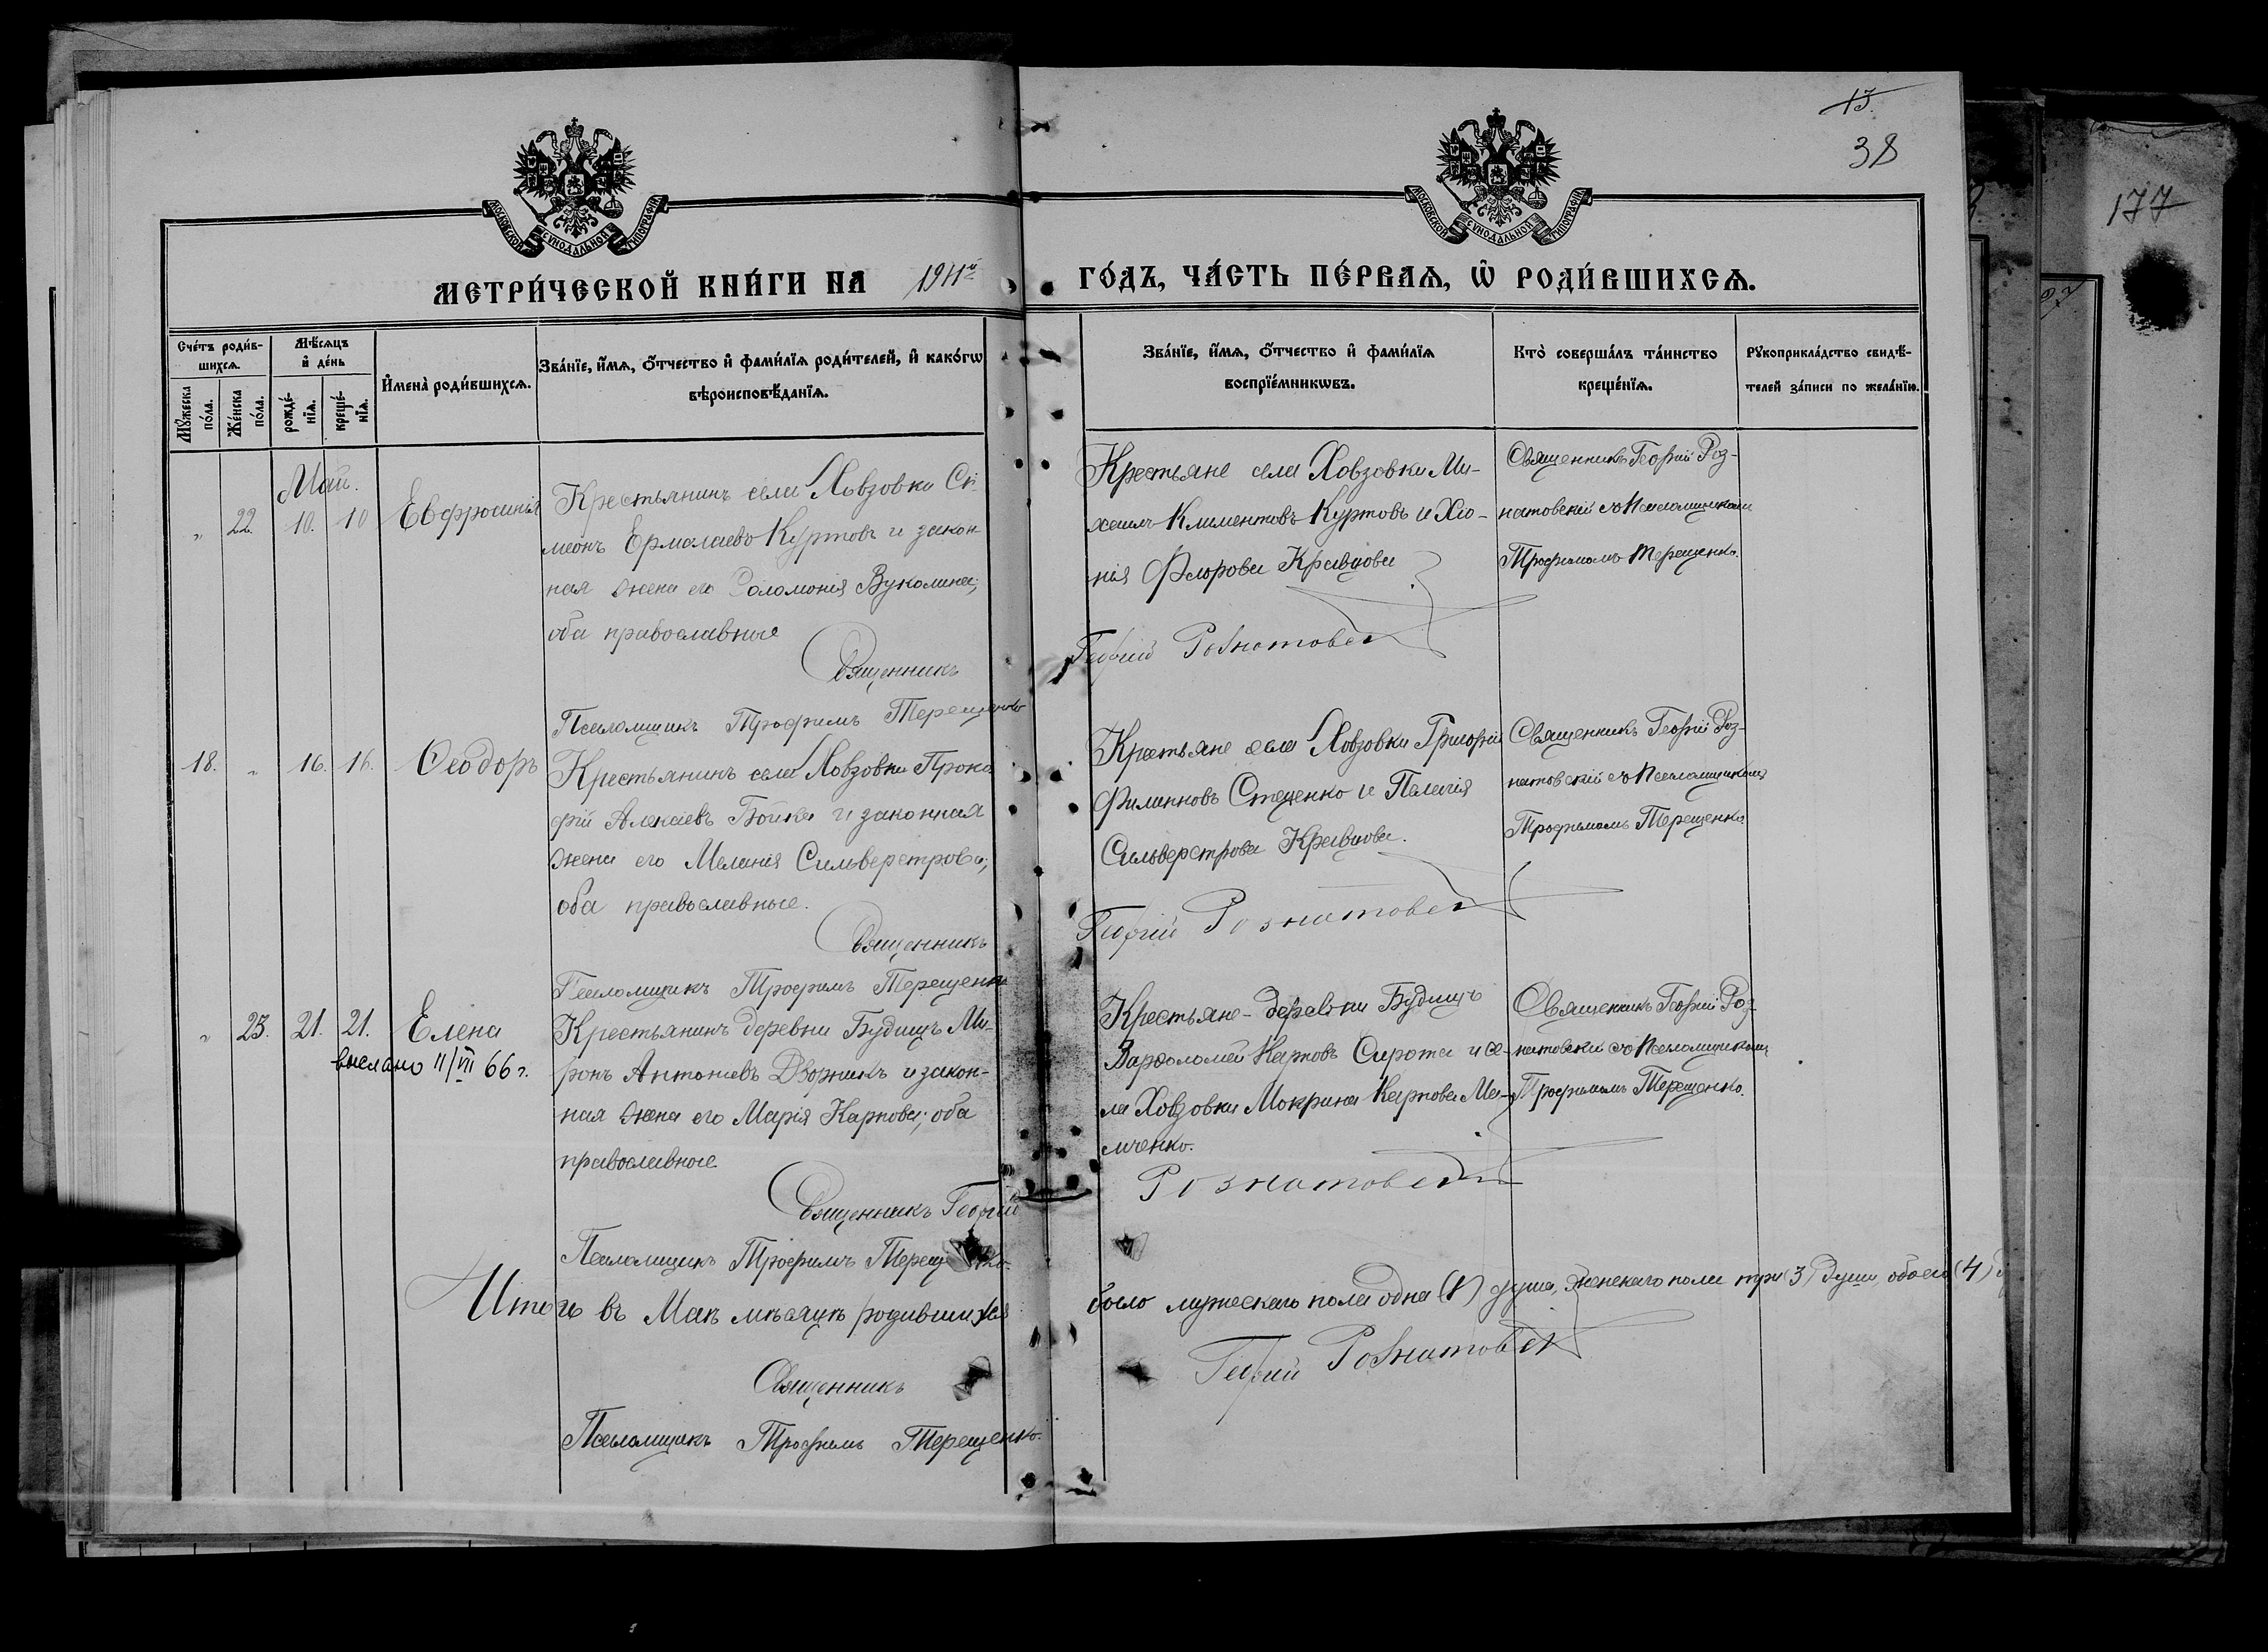 13.
38
177
МОСКОВСКОЙ СѴНОДАЛЬНОЙ ТИПОГРАФІИ
МОСКОВСКОЙ СѴНОДАЛЬНОЙ ТИПОГРАФІИ
МЕТРИ́ЧЕСКОЙ КНИ́ГИ НА 1911й ГО́ДЪ, ЧА́СТЬ ПЕ́РВАѦ, Ѡ҆ РОДИ́ВШИХСѦ.
Сче́тъ роди́в-
шихсѧ.
Мꙋ́жеска по́ла.
Же́нска по́ла.
Мѣ́сѧцъ
и҆ де́нь
рожде́-
нїѧ.
креще́-
нїѧ.
И҆мена̀ роди́вшихсѧ.
Зва́нїе, и҆́мѧ, ѻ҆́тчество и҆ фами́лїѧ роди́телей, и҆ како́гѡ
вѣроисповѣ́данїѧ.
Зва́нїе, и҆́мѧ, ѻ҆́тчество и҆ фами́лїѧ
воспрїе́мникѡвъ.
Кто̀ соверша́лъ та́инство
креще́нїѧ.
Рꙋкоприкла́дство свидѣ́-
телей за́писи по жела́нїю.
Май.
„ 22. 10. 10 Евфросинія
Крестьянинъ села Ховзовки Си-
меонъ Ермолаевъ Куртовъ и закон-
ная жена его Соломонія Вуколина;
оба православные
Священникъ
Псаломщикъ Трофимъ Терещенко
Крестьяне села Ховзовки Ми-
хаилъ Климентовъ Куртовъ и Хio-
нія Флорова Кравцова
Георгій Рознатовскій
Священникъ Георгій Роз-
натовскій съ Псаломщикомъ
Трофимомъ Терещенко.
18. „ 16. 16. Ѳеодоръ
Крестьянинъ села Ховзовки Проко-
фій Алексѣевъ Бойко и законная
жена его Меланія Сильверстрова;
оба православные.
Священникъ
Псаломщикъ Трофимъ Терещенко
Крестьяне села Ховзовки Григорій
Филипповъ Стеценко и Пелагія
Сильверстрова Кравцова.
Георгій Рознатовскій
Священникъ Георгій Роз-
натовскій съ Псаломщикомъ
Трофимомъ Терещенко
„ 23. 21. 21. Елена
выслано 11/VII 66 г.
Крестьянинъ деревни Будищъ Ми-
ронъ Антоніевъ Дворникъ и закон-
ная жена его Марія Карпова; оба
православные
Священникъ Георгій
Псаломщикъ Трофимъ Терещенко.
Крестьяне - деревни Будищъ
Варѳоломей Карповъ Сирота и се-
ла Ховзовки Мокрина Карпова Ма-
мченко.
Рознатовскій
Священникъ Георгій Роз-
натовскій съ Псаломщикомъ
Трофимомъ Терещенко.
Итого въ Маѣ мѣсяцѣ родившихся было мужескаго пола одна (1) душа, женскаго пола три (3) души, обоего (4)
Священникъ Георгій Рознатовскій
Псаломщикъ Трофимъ Терещенко.